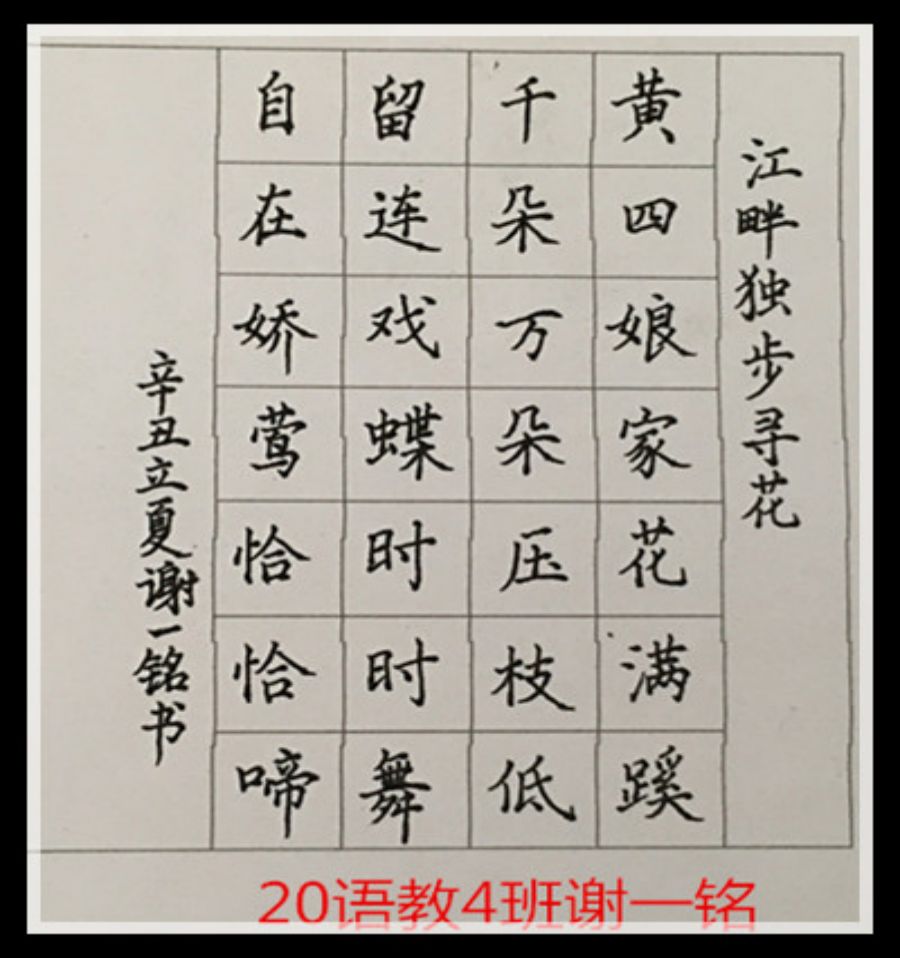 江畔独步寻花
黄四娘家花满蹊
千朵万朵压枝低
留连戏蝶时时舞
自在娇莺恰恰啼
辛丑立夏谢一铭书
20语教4班谢一铭